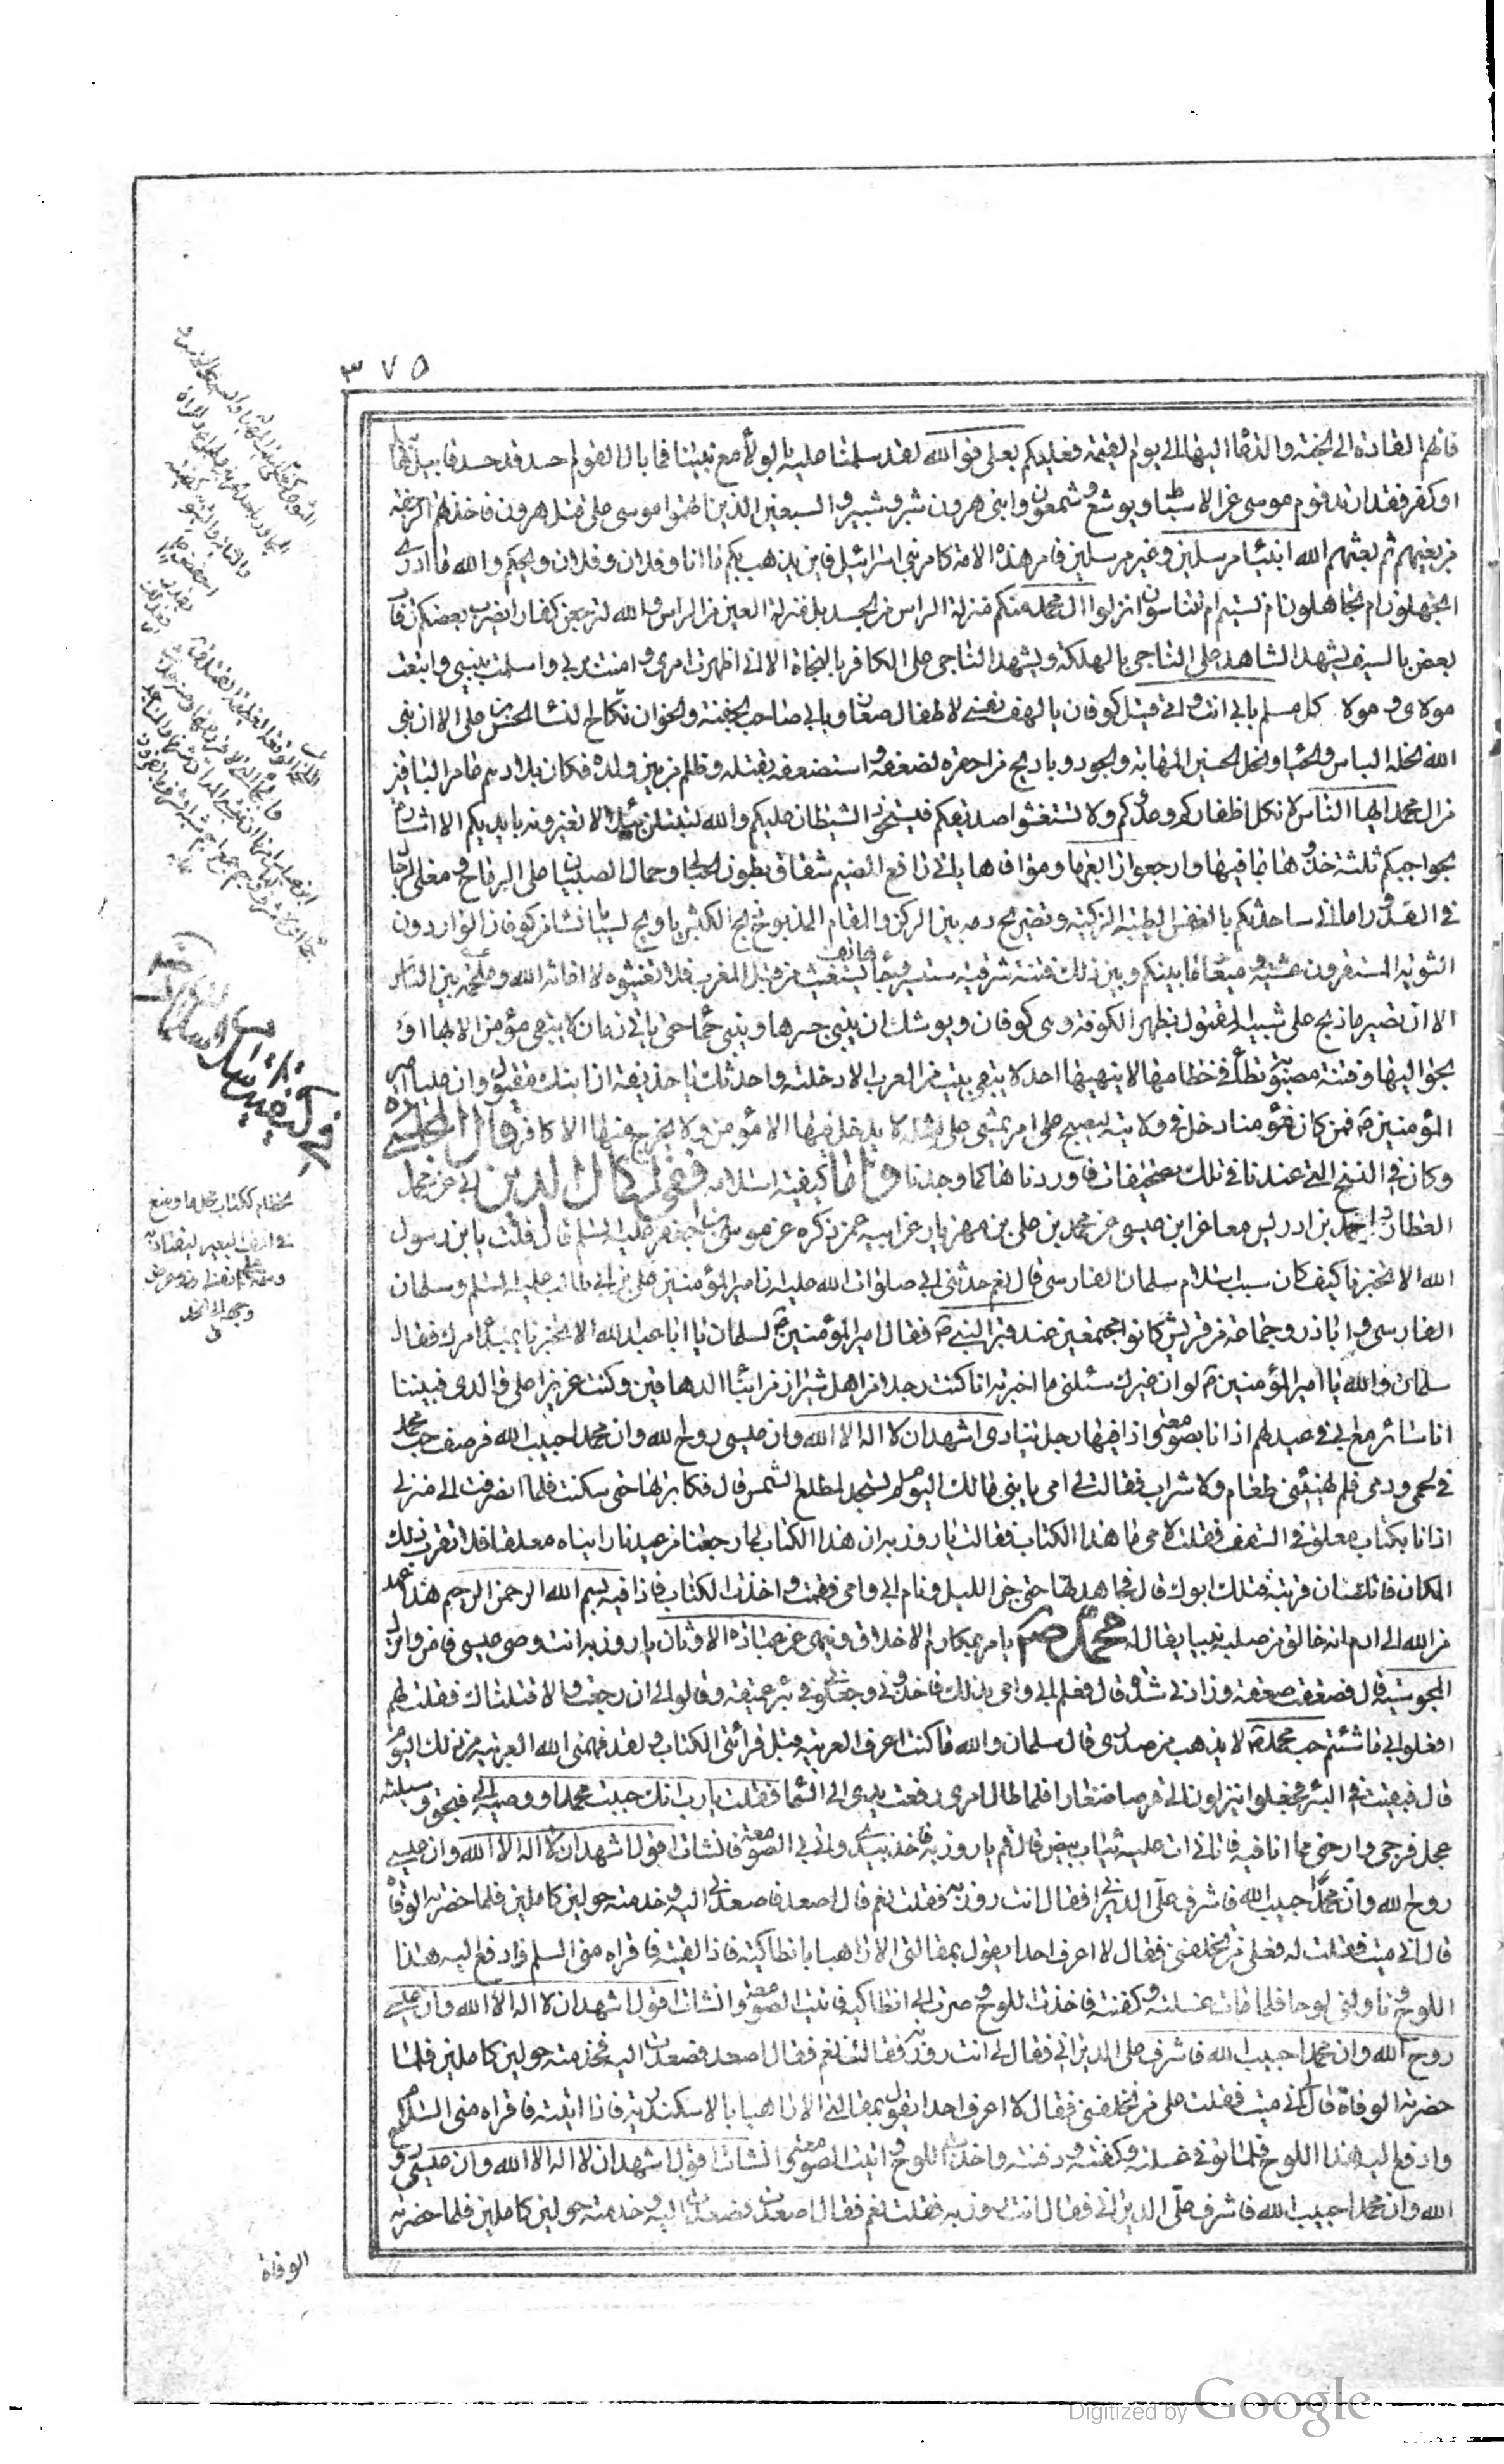 ٣٧٥
فانهم القادة الى الجنة والدعاة اليها الى يوم القيمة فعليكم بعلى فوالله لقد سلمنا عليه بالولاء مع نبينا فما بال القوم احسد قد حسد قابيل هابيل
او كفر فقد ارتد قوم موسى عن الاسباط ويوشع وشمعون وابنى هرون شبر وشبير والسبعين الذين اتهموا موسى على قتل هرون فاخذتهم الرجفة
من بغيهم ثم بعثهم الله انبياء مرسلين وغير مرسلين فامر هذه الامة كامر بنى اسرائيل فاين يذهب بكم ما انا وفلان وفلان ويحكم والله ما ادرى
اتجهلون ام تجاهلون ام نسيتم ام تتناسون انزلوا ال محمد منكم منزلة الراس من الجسد بل منزلة العين من الراس والله لترجعن كفارا يضرب بعضكم رقاب
بعض بالسيف يشهد الشاهد على الناجى بالهلكة ويشهد الناجى على الكافر بالنجاة الا انى اظهرت امرى وامنت بربى واسلمت بنبيى واتبعت
مولاى ومولا كل مسلم بابى انت وامى قتيل كوفان يا لهف نفسى لاطفال صغار وبابى صاحب الجفنة والخوان نكاح النساء الحسن بن على الا ان نبى
الله نحله الباس والحيا ونحل الحسين المهابة والجود ويا ويح من احقره لضعفه واستضعفه بقتله وظلم من بين ولده فكان بلادهم عامر الباقين
من ال محمد ايها الناس لا تكل اظفاركم عن عدوكم ولا تستغشوا صديقكم فيستحوذ الشيطان عليكم والله لتبتلن ببلاء لا تغيرونه بايديكم الا اشارة
بحواجبكم ثلثة خذوها بما فيها وارجوا رابعها وموافاها بابى دافع الضيم شقاق بطون الحبالى وحمال الصبيان على الرماح ومغلى الرجال
فى القدور اما انى ساحدثكم بالنفس الطيبة الزكية وتضريج دمه بين الركن والمقام المذبوح كذبح الكبش يا ويح لسبايا نساء من كوفان الواردون
الثوية المستقرون عشية وميعاد ما بينكم وبين ذلك فتنة شرقية ستسير وجاء هاتف يستغيث من قبل المغرب فلا تغيثوه لا اغاثه الله وملحمة بين الناس
الا ان تصير ما ذبح على شبيه المقتول بظهر الكوفة وهى كوفان ويوشك ان يبنى جسرها ويبنى جما حتى ياتى زمان لا يبقى مؤمن الا بها او
يحن اليها وفتنة مصبوبة تطأ فى خطامها لا ينهيها احد لا يبقى بيت من العرب الا دخلته واحدثك يا حذيفة ان ابنك مقتول وان عليا امير
المؤمنين فمن كان مؤمنا دخل فى ولايته ليصبح على امر يمشى على مثله لا يدخل فيها الا مؤمن ولا يخرج منها الا كافر قال المجلسى
وكان فى النسخ التى عندنا فى تلك تصحيفات فاوردناها كما وجدنا واما كيفية اسلامه ففى اكمال الدين ابى عن محمد
العطار واحمد بن ادريس معا عن ابن عيسى عن محمد بن على بن مهزيار عن ابيه عمن ذكره عن موسى بن جعفر عليه السلم قال قلت يا بن رسول
الله الا تخبرنا كيف كان سبب اسلام سلمان الفارسى قال نعم حدثنى ابى صلوات الله عليه ان امير المؤمنين على بن ابى طالب عليه السلم وسلمان
الفارسى واباذر وجماعة من قريش كانوا مجتمعين عند قبر النبى ص فقال امير المؤمنين ع لسلمان يا ابا عبد الله الا تخبرنا بمبدأ امرك فقال
سلمان والله يا امير المؤمنين ع لو ان غيرك سئلنى ما اخبرته انا كنت رجلا من اهل شيراز من ابناء الدهاقين وكنت عزيزا على والدى فبينا
انا سائر مع ابى فى عيد لهم اذ انا بصومعة واذا فيها رجل ينادى اشهد ان لا اله الا الله وان عيسى روح الله وان محمدا حبيب الله فرصف حب محمد
فى لحمى ودمى فلم يهنئنى طعام ولا شراب فقالت لى امى يا بنى مالك اليوم لم تسجد لمطلع الشمس قال فكابرتها حتى سكتت فلما انصرفت الى منزلى
اذا انا بكتاب معلق فى السقف فقلت لامى ما هذا الكتاب فقالت يا روزبه ان هذا الكتاب لما رجعنا من عيدنا رايناه معلقا فلا تقرب ذلك
المكان فانك ان قربته قتلك ابوك قال فجاهدتها حتى جن الليل ونام ابى وامى فقمت واخذت الكتاب فاذا فيه بسم الله الرحمن الرحيم هذا عهد
من الله الى ادم انه خالق من صلبه نبيا يقال له محمد ص يامر بمكارم الاخلاق وينهى عن عبادة الاوثان يا روزبه انت وصى عيسى فامن واترك
المجوسية قال فصعقت صعقة وزادنى شدة قال فعلم ابى وامى بذلك فاخذونى وجعلونى فى بئر عميقة وقالوا لى ان رجعت والا قتلناك فقلت لهم
افعلوا بى ما شئتم حب محمد ص لا يذهب من صدرى قال سلمان والله ما كنت اعرف العربية قبل قرائتى الكتاب ولقد فهمنى الله العربية من ذلك اليوم
قال فبقيت فى البئر فجعلوا ينزلون الى قرصا صغارا فلما طال امرى رفعت يدى الى السماء فقلت يا رب انك حببت محمدا ووصيه الى فبحق وسيلته
عجل فرجى وارحنى مما انا فيه فاتانى ات عليه ثياب بيض قال قم يا روزبه فاخذ بيدى واتى بى الصومعة فانشات اقول اشهد ان لا اله الا الله وان عيسى
روح الله وان محمدا حبيب الله فاشرف على الديرانى فقال انت روزبه فقلت نعم قال اصعد فاصعدنى اليه وخدمته حولين كاملين فلما حضرته الوفاة
قال انى ميت فقلت له فعلى من تخلفنى فقال لا اعرف احدا يقول بمقالتى الا راهبا بانطاكية فاذا لقيته فاقراه منى السلم وادفع اليه هذا
اللوح وناولنى لوحا فلما مات غسلته وكفنته فاخذت اللوح وصرت الى انطاكية فاتيت الصومعة وانشات اقول اشهد ان لا اله الا الله وان عيسى
روح الله وان محمدا حبيب الله فاشرف على الديرانى فقال لى انت روزبه فقلت نعم فقال اصعد فصعدت اليه فخدمته حولين كاملين فلما
حضرته الوفاة قال انى ميت فقلت على من تخلفنى فقال لا اعرف احدا يقول بمقالتى الا راهبا بالاسكندرية فاذا اتيته فاقراه منى السلام
وادفع اليه هذا اللوح فلما توفى غسلته وكفنته ودفنته واخذت اللوح واتيت الصومعة وانشات اقول اشهد ان لا اله الا الله وان عيسى روح
الله وان محمدا حبيب الله فاشرف على الديرانى فقال انت روزبه فقلت نعم فقال اصعد فصعدت اليه وخدمته حولين كاملين فلما حضرته
الوفاة
فى كيفية اسلام سلمان
Digitized by Google